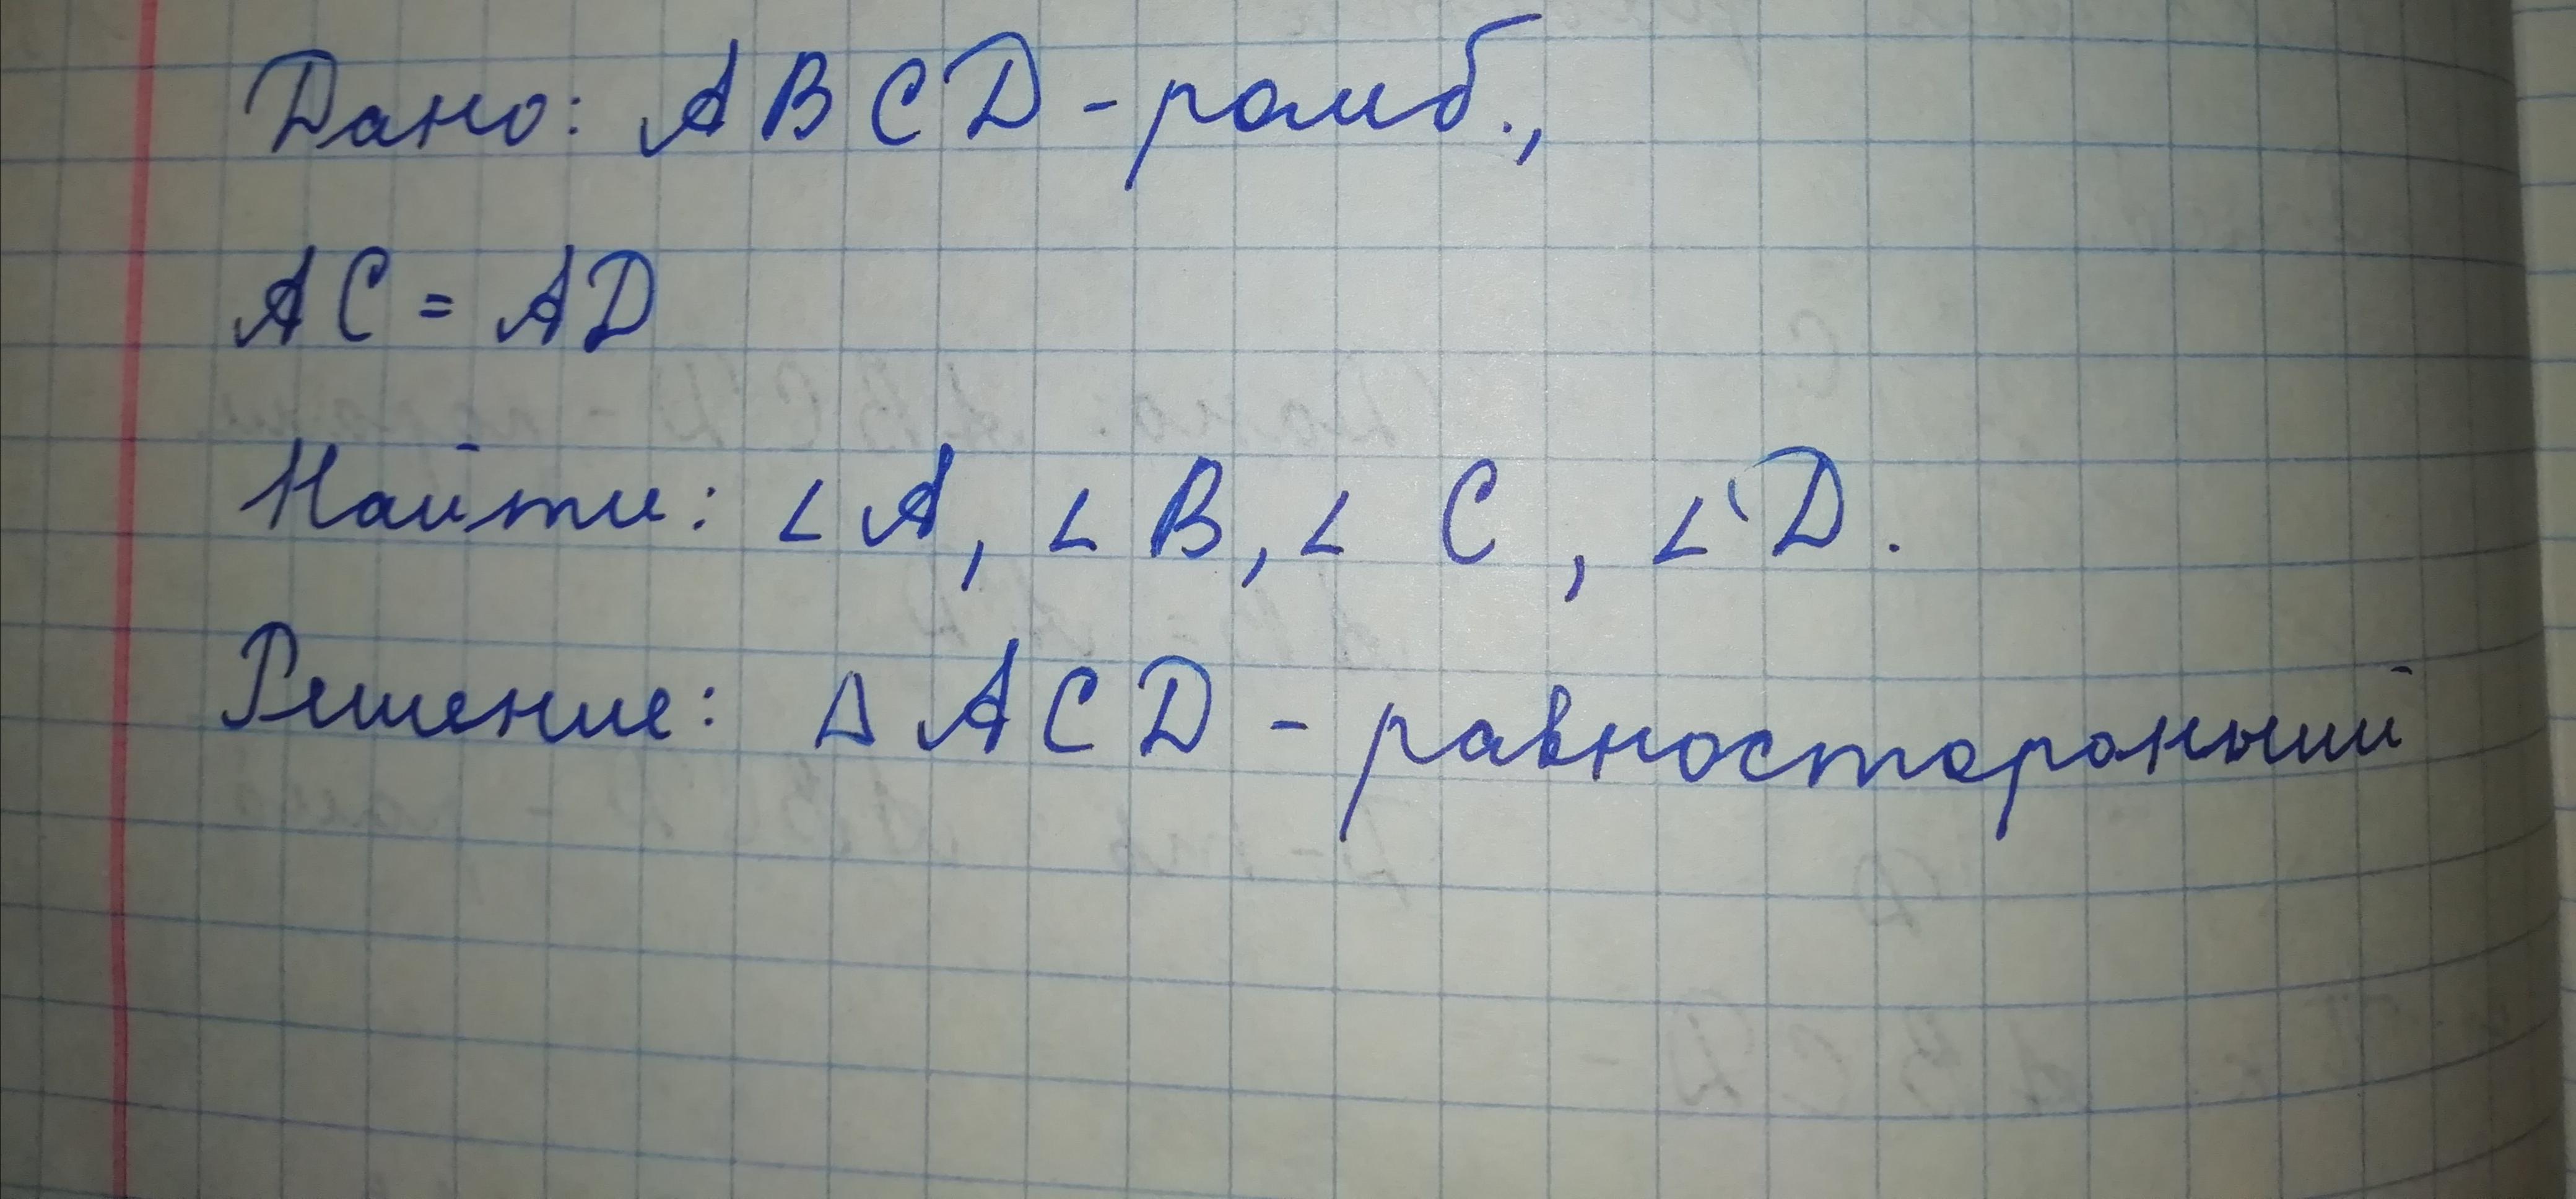 Дано: ABCD - ромб.,
AC = AD
Найти: ∠A, ∠B, ∠C, ∠D.
Решение: △ACD - равносторонный